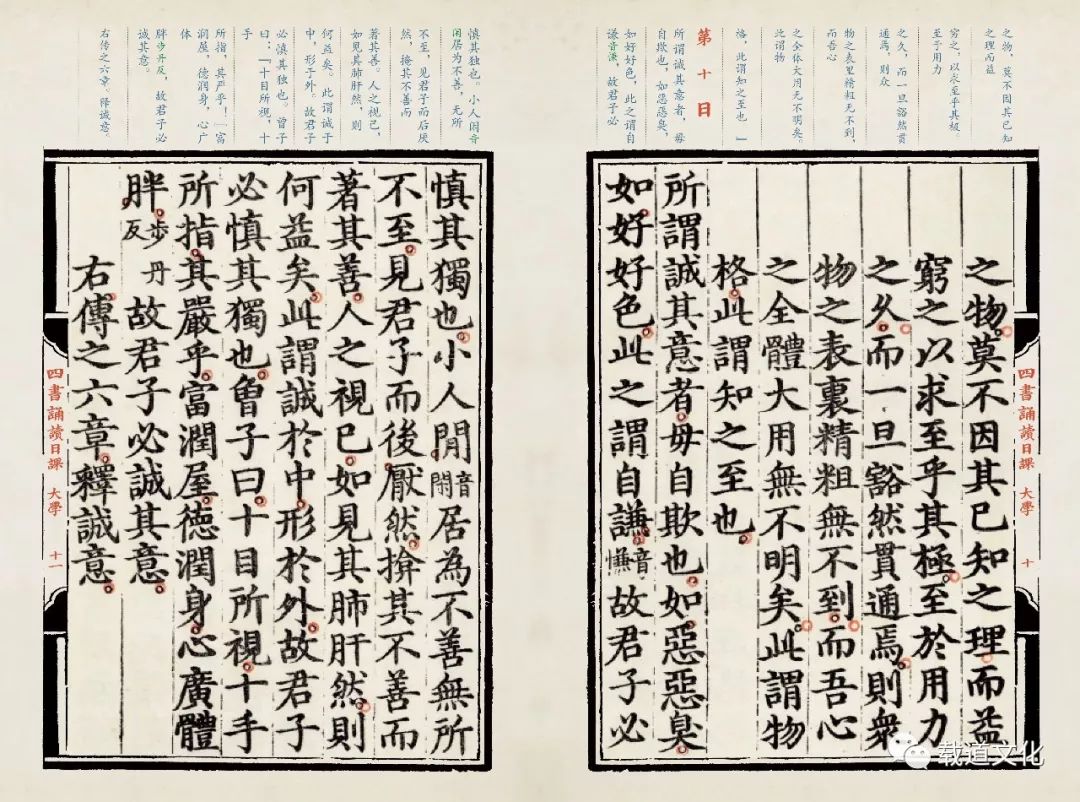 之物，莫不因其已知
之理而益
穷之，以求至乎其极。
至于用力
之久，而一旦豁然贯
通焉，则众
物之表里精粗无不到，
而吾心
之全体大用无不明矣。
此谓物
格，此谓知之至也 」
第十日
所谓诚其意者，毋
自欺也，如恶恶臭，
如好好色，此之谓自
谦音慊，故君子必
之物。莫不因其已知之理而益
窮之以求至乎其極。至於用力
之久。而一旦豁然貫通焉。則衆
物之表裏精粗無不到。而吾心
之全體大用無不明矣。此謂物
格。此謂知之至也。
所謂誠其意者。毋自欺也。如惡惡臭。
如好好色。此之謂自謙。音慊故君子必
四書誦讀日課 大學 十
慎其独也。小人闲音
闲居为不善，无所
不至，见君子而后厌
然，掩其不善而
著其善。人之视己，
如见其肺肝然，则
何益矣。此谓诚于
中，形于外。故君子
必慎其独也。曾子
曰：「十目所视，十
手
所指，其严乎！」富
润屋，德润身，心广
体
胖步丹反，故君子必
诚其意。
右传之六章。释诚意。
慎其獨也。小人閒音閑居為不善無所
不至。見君子而後厭然。揜其不善而
著其善。人之視己。如見其肺肝然。則
何益矣。此謂誠於中。形於外。故君子
必慎其獨也。曾子曰。十目所視。十手
所指。其嚴乎。富潤屋。德潤身。心廣體
胖。步丹反故君子必誠其意。
右傳之六章。釋誠意。
四書誦讀日課 大學 十一
载道文化